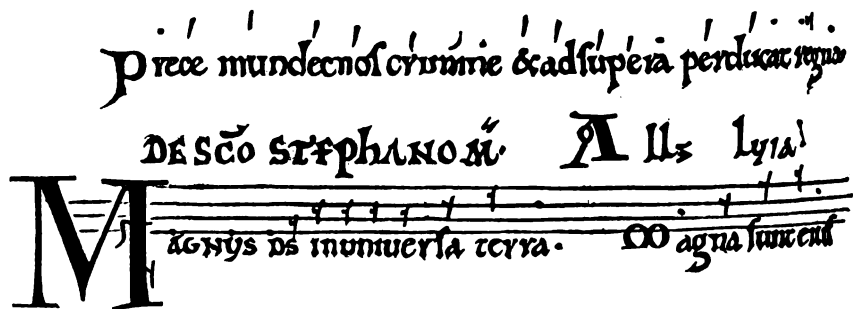 Prece mundet nos crimine & ad supera perducat regna
DE SCO STEPHANO M. All's lyia
MAGNUS DS in universa terra. Magna sunt enis